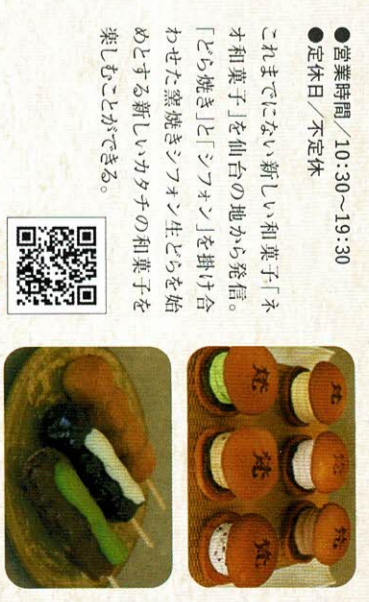 ●営業時間/10:30〜19:30
●定休日/不定休
これまでにない新しい和菓子「ネ
オ和菓子」を仙台の地から発信。
「どら焼き」と「シフォン」を掛け合
わせた窯焼きシフォン生どらを始
めとする新しいカタチの和菓子を
楽しむことができる。